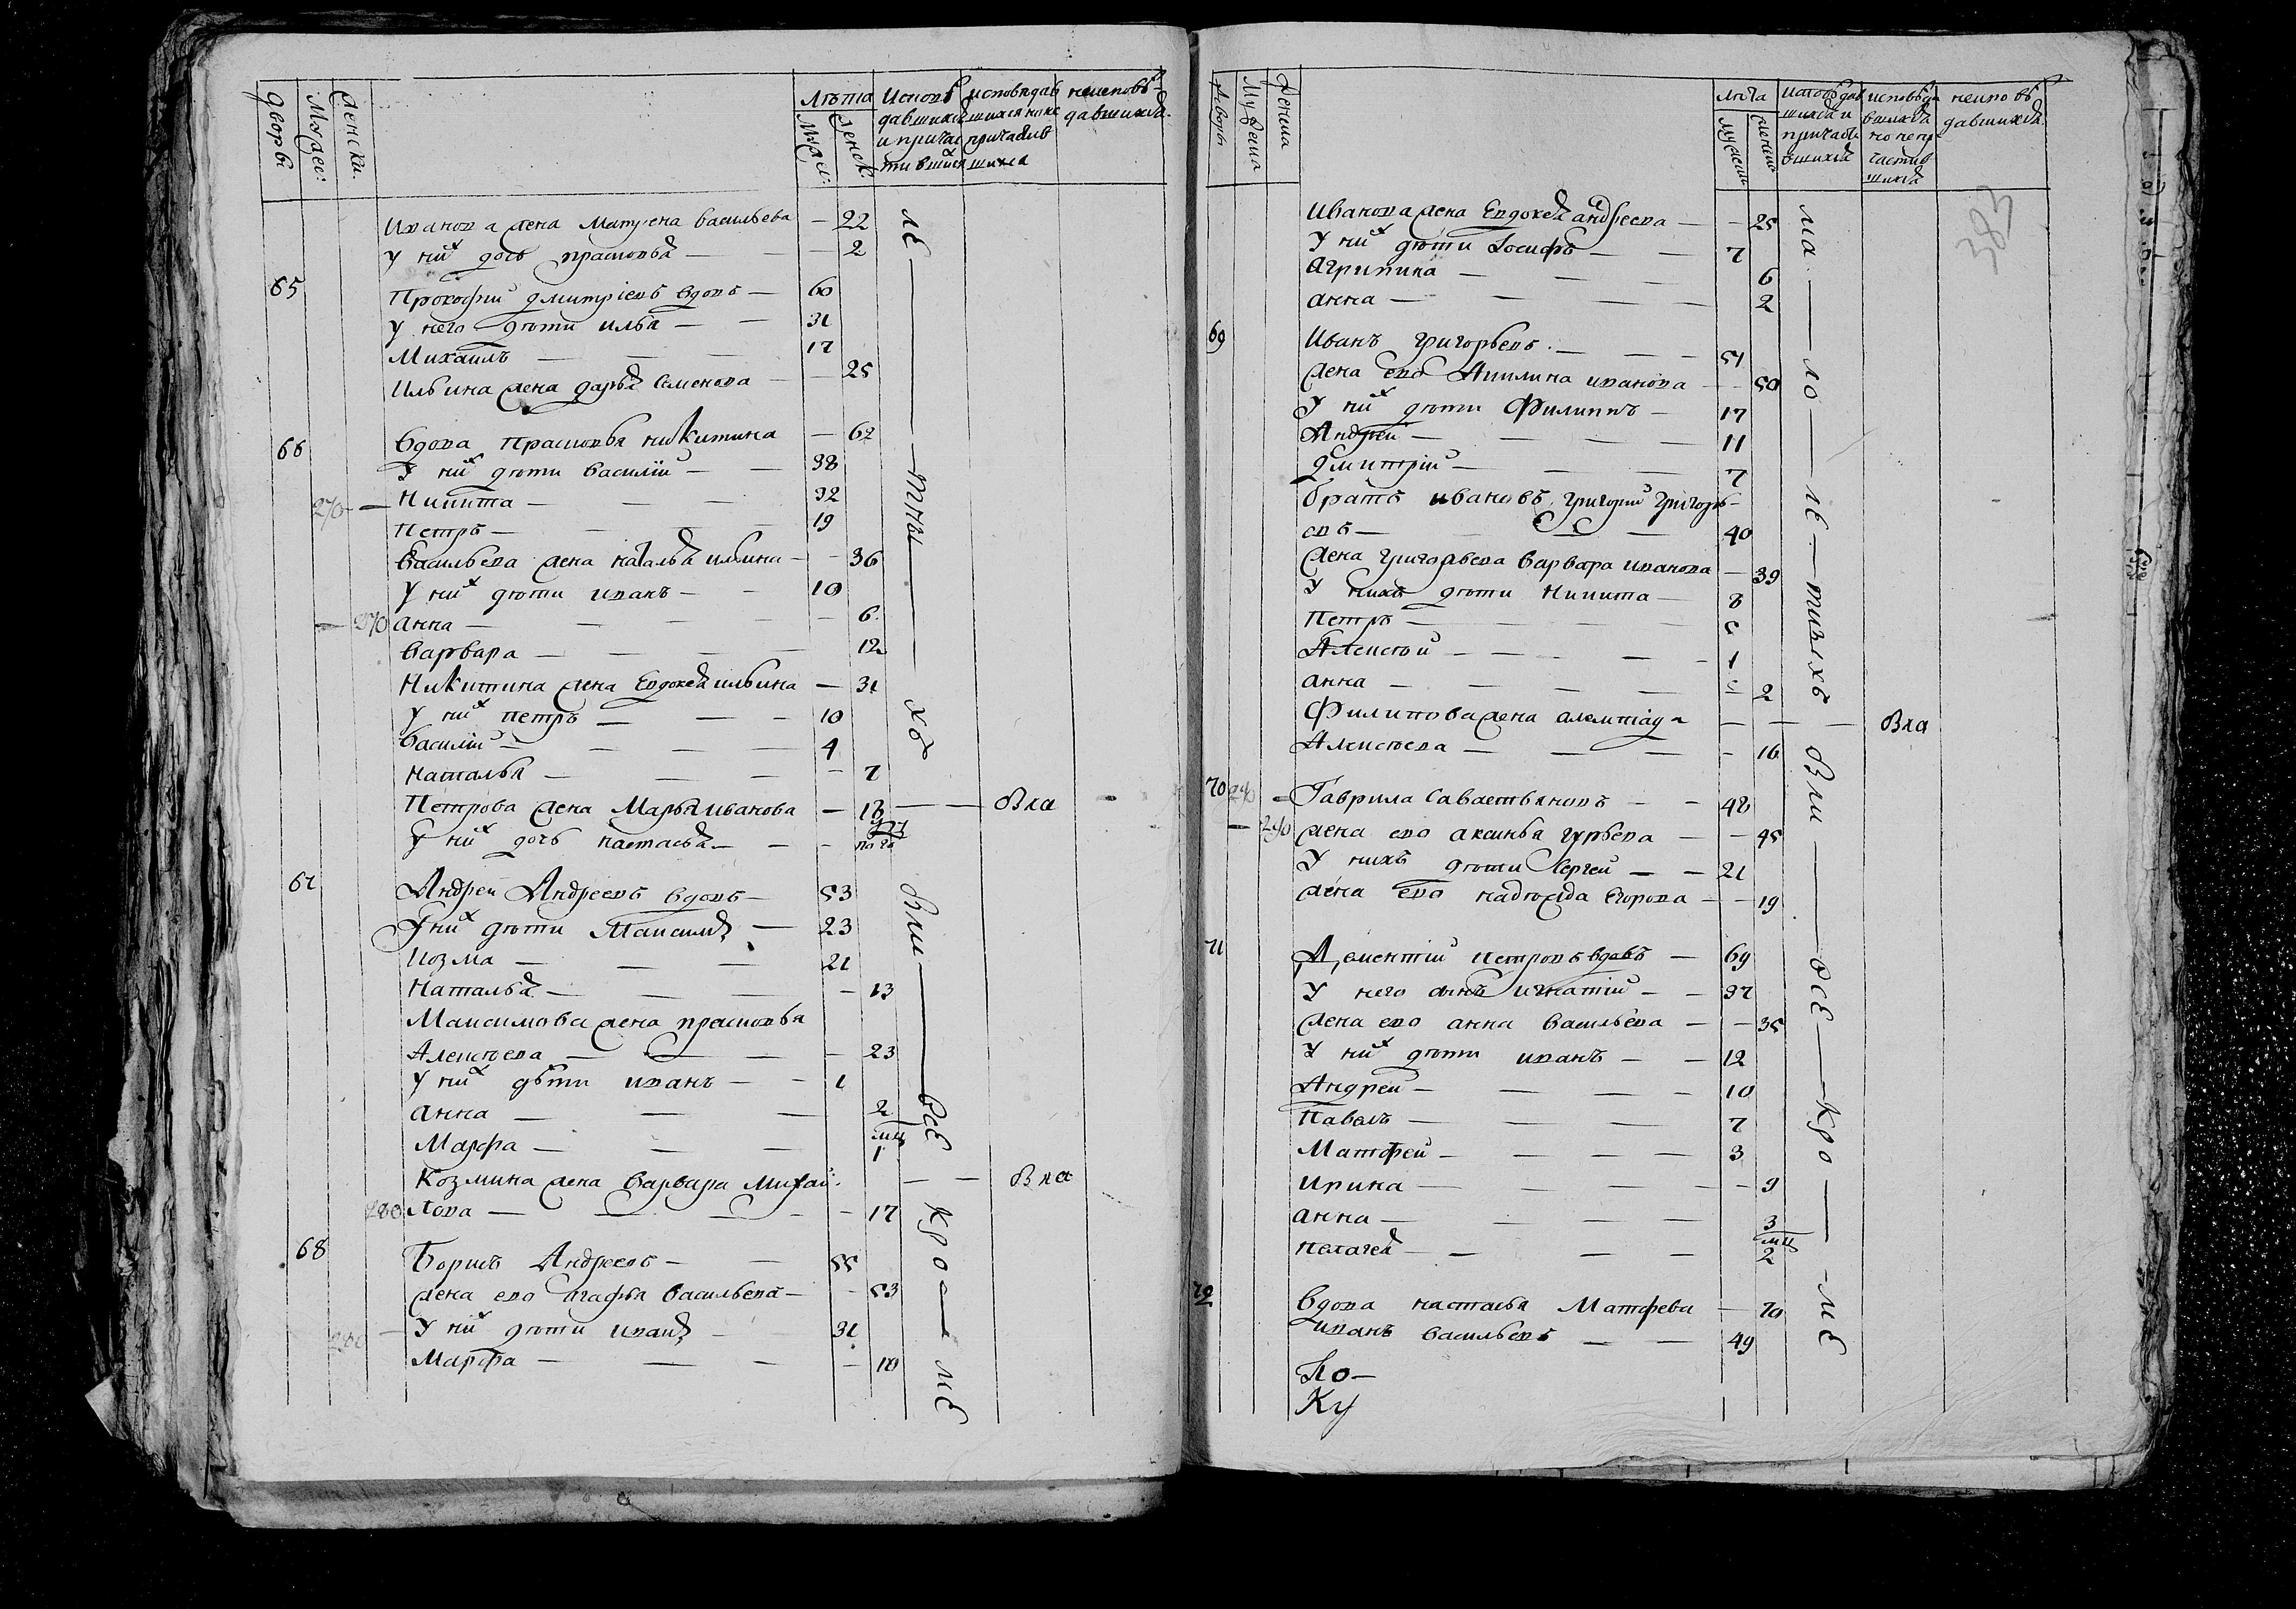 дворы Мужес: женски. Лѣта Муж: женск: Исповѣдавшихся и причастившихся исповѣдавшихся ноне причастившихся неисповѣдавшихся
Иванова жена Матрена Васильева — 22
У них дочь прасковья — 2
65 Прокофий дмитріевъ вдовъ — 60
У него дѣти илья — 31
Михаилъ — 17
Ильина жена дарья Семенова — 25
66 Вдова Прасковья никитина — 62
У них дѣти Василій — 38
Никита — 32
Петръ — 19
Васильева жена наталья ильина — 36
У них дѣти иванъ — 10
анна — 6
варвара — 12
Никитина жена Евдокея ильина — 31
У них петръ — 10
Василій — 4
наталья — 7
Петрова жена Марья иванова — 18 — Вла
У них дочь настасья —
67 Андрей Андреевъ вдовъ — 53
У них дѣти Максимъ — 23
Козма — 21
Наталья — 13
Максимова жена прасковья
Алексѣева — 23
У них дѣти иванъ — 1
анна — 2
Марфа — 1
Козмина жена варвара Михай: — Вла
лова — 17
68 Борисъ Андреевъ — 55
жена ево агафья Васильева — 53
У них дѣти иванъ — 31
Марфа — 18
ле — тны хъ вли — всѣ кро — ме
дворы Мужеска женска Лѣта мужеска женска исповѣдавшихся и причастившихся исповѣдавшихся но непричастившихся неисповѣдавшихся
383
Иванова жена Евдокея андреева — 25
У них дѣти Iосифъ — 7
агрипина — 6
анна — 2
69 Иванъ григорьевъ — 51
жена ево Акилина иванова — 50
У них дѣти Филиппъ — 17
Андрей — 11
дмитрій — 7
братъ ивановъ григорий григорь-
евъ — 40
жена григорьева варвара иванова — 39
У нихъ дѣти Никита — 8
Петръ —
Алексѣй — 1
анна — 2
Филипова жена — Вла
Алексѣева — 16
70 Гаврила Савастьяновъ — 48
жена ево аксинья гурьева — 45
У нихъ дѣти Сергей — 21
жена ево надѣжда Егорова — 19
71 Дементій петровъ вдовъ — 69
У него сынъ игнатій — 37
жена ево анна Васильева — 35
У них дѣти иванъ — 12
Андрей — 10
Павелъ — 7
Матфей — 3
ирина — 9
анна — 3
пелагея — 2
72 Вдова настасья Матфева — 70
иванъ Васильевъ — 49
Ко —
Ку
ма — ло — ле — тныхъ вли — всѣ — кро — ме